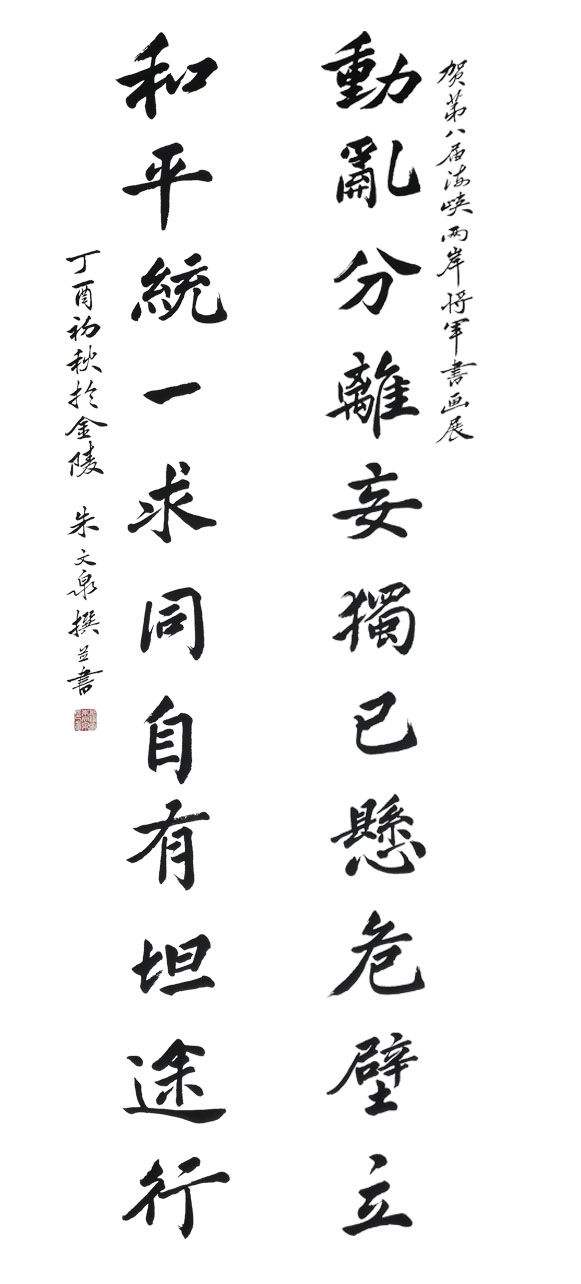 贺第八届海峡两岸将军書画展
動亂分離妄獨已懸危壁立
和平統一求同自有坦途行
丁酉初秋於金陵 朱文泉撰并書